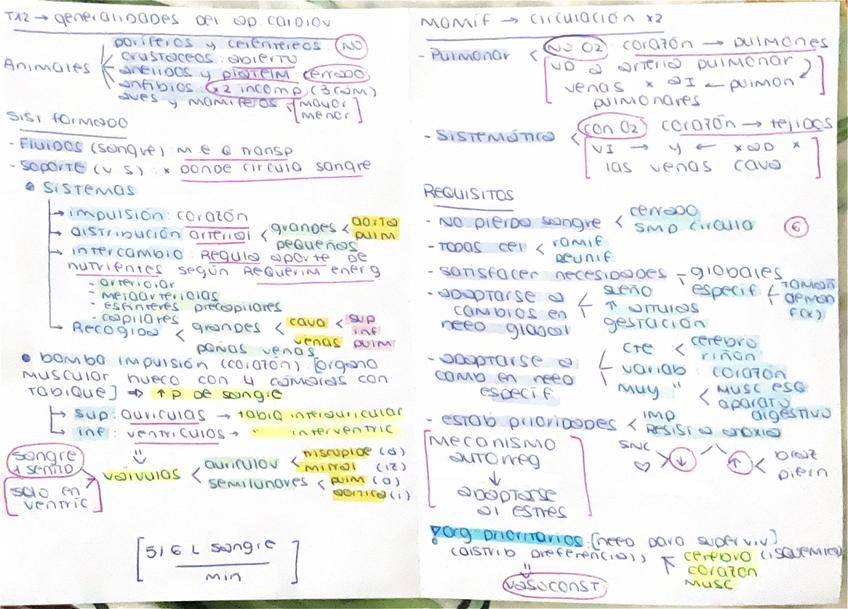 TX2 → generalidades del ap cardiov
Animales
poríferos y celentéreos NO
crustáceos: abierto
anélidos y cerrado
anfibios: x2 incomp (3 cam)
aves y mamíferos mayor
menor
Sist formado
- Fluidos (sangre) transp
- Soporte (v s): x donde circula sangre
• Sistemas
→ impulsión: corazón
→ distribución arterial < grandes < aorta
pulm
pequeños
→ intercambio: Regula aporte de
nutrientes según Requerim energ
- arteriolar
- metaarteriolas
- esfínteres precapilares
- capilares
→ Recogida < grandes < cava < sup
inf
venas pulm
venas
• bomba impulsión (corazón) [órgano
muscular hueco con 4 cámaras con
tabique] ⇒ ↑ P de sangre
→ sup: aurículas → tabiq interauricular
→ inf: ventrículos → " interventric
sangre
1 sentido
solo en
ventric
válvulas < auriculov < triscupide (d)
mitral (iz)
semilunares < pulm (d)
aortica (i)
[5 | 6 L sangre
min]
Mamíf → circulación x2
- Pulmonar < NO O2 corazón → pulmones
VD a arteria pulmonar
venas x AI ← pulmon
pulmonares
- Sistemático < con O2 corazón → tejidos
VI → y ← x AD x
las venas cava
Requisitos
- No pierda sangre < cerrado
smp circula 6
- Todas cel < ramif
reunif
- satisfacer necesidades - globales
especif < tamañ
deman
f(x)
- adaptarse a
cambios en
neco global
sueño
↑ altitud
gestación
- adaptarse a
camb en neco
especif
cte < cerebro
riñón
variab: corazón
muy " < musc esq
aparato
digestivo
- estab prioridades < imp
Resist a anoxia
Mecanismo
autorreg
↓
adaptarse
al estrés
SNC
♡ > ↓ ↑ < braz
piern
org prioritarios: [neco para superviv]
(distrib preferencial)
cerebro (isquémico)
corazón
musc
vasoconst